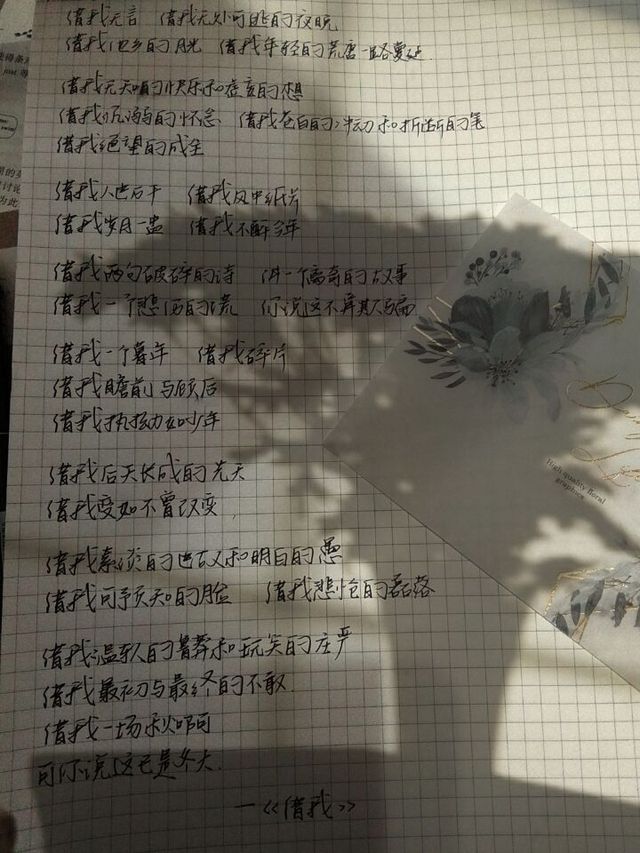 借我无言 借我无处可逃的夜晚
借我他乡的月光 借我年轻的荒唐一路蔓延
借我无知的快乐和虚妄的想
借我沉溺的怀念 借我苍白的冲动和折断的笔
借我绝望的成全
借我人世 借我风中纸片
借我岁月一盅 借我不解多年
借我两句破碎的诗 讲一个离奇的故事
借我一个的谎 你说这不算欺骗
借我一个暮年 借我碎片
借我瞻前与顾后
借我执拗如少年
借我后天长成的先天
借我变如不曾改变
借我素淡的世故和明白的愚
借我可预知的脸 借我悲怆的磊落
借我温软的鲁莽和玩笑的庄严
借我最初与最终的不敢
借我一场秋啊
可你说这已是冬天
—《借我》
High quality floral
graphics